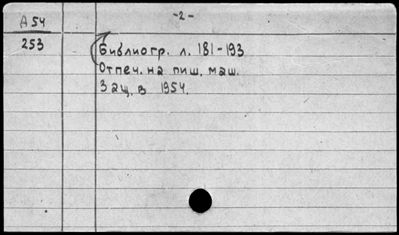 -2-
А 54
253
Библиогр. л. 181-193
Отпеч. на пиш. маш.
Защ. в 1954.